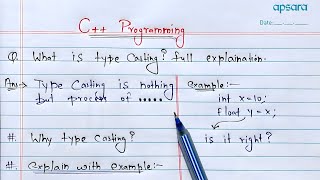 apsara
Date:
C++ Programming
Q. What is type Casting? full explaination.
Ans→ Type Casting is nothing
but process of .....
Example:-
int x=10;
float y=x;
#. Why type Casting?
is it right?
#. Explain with example:-